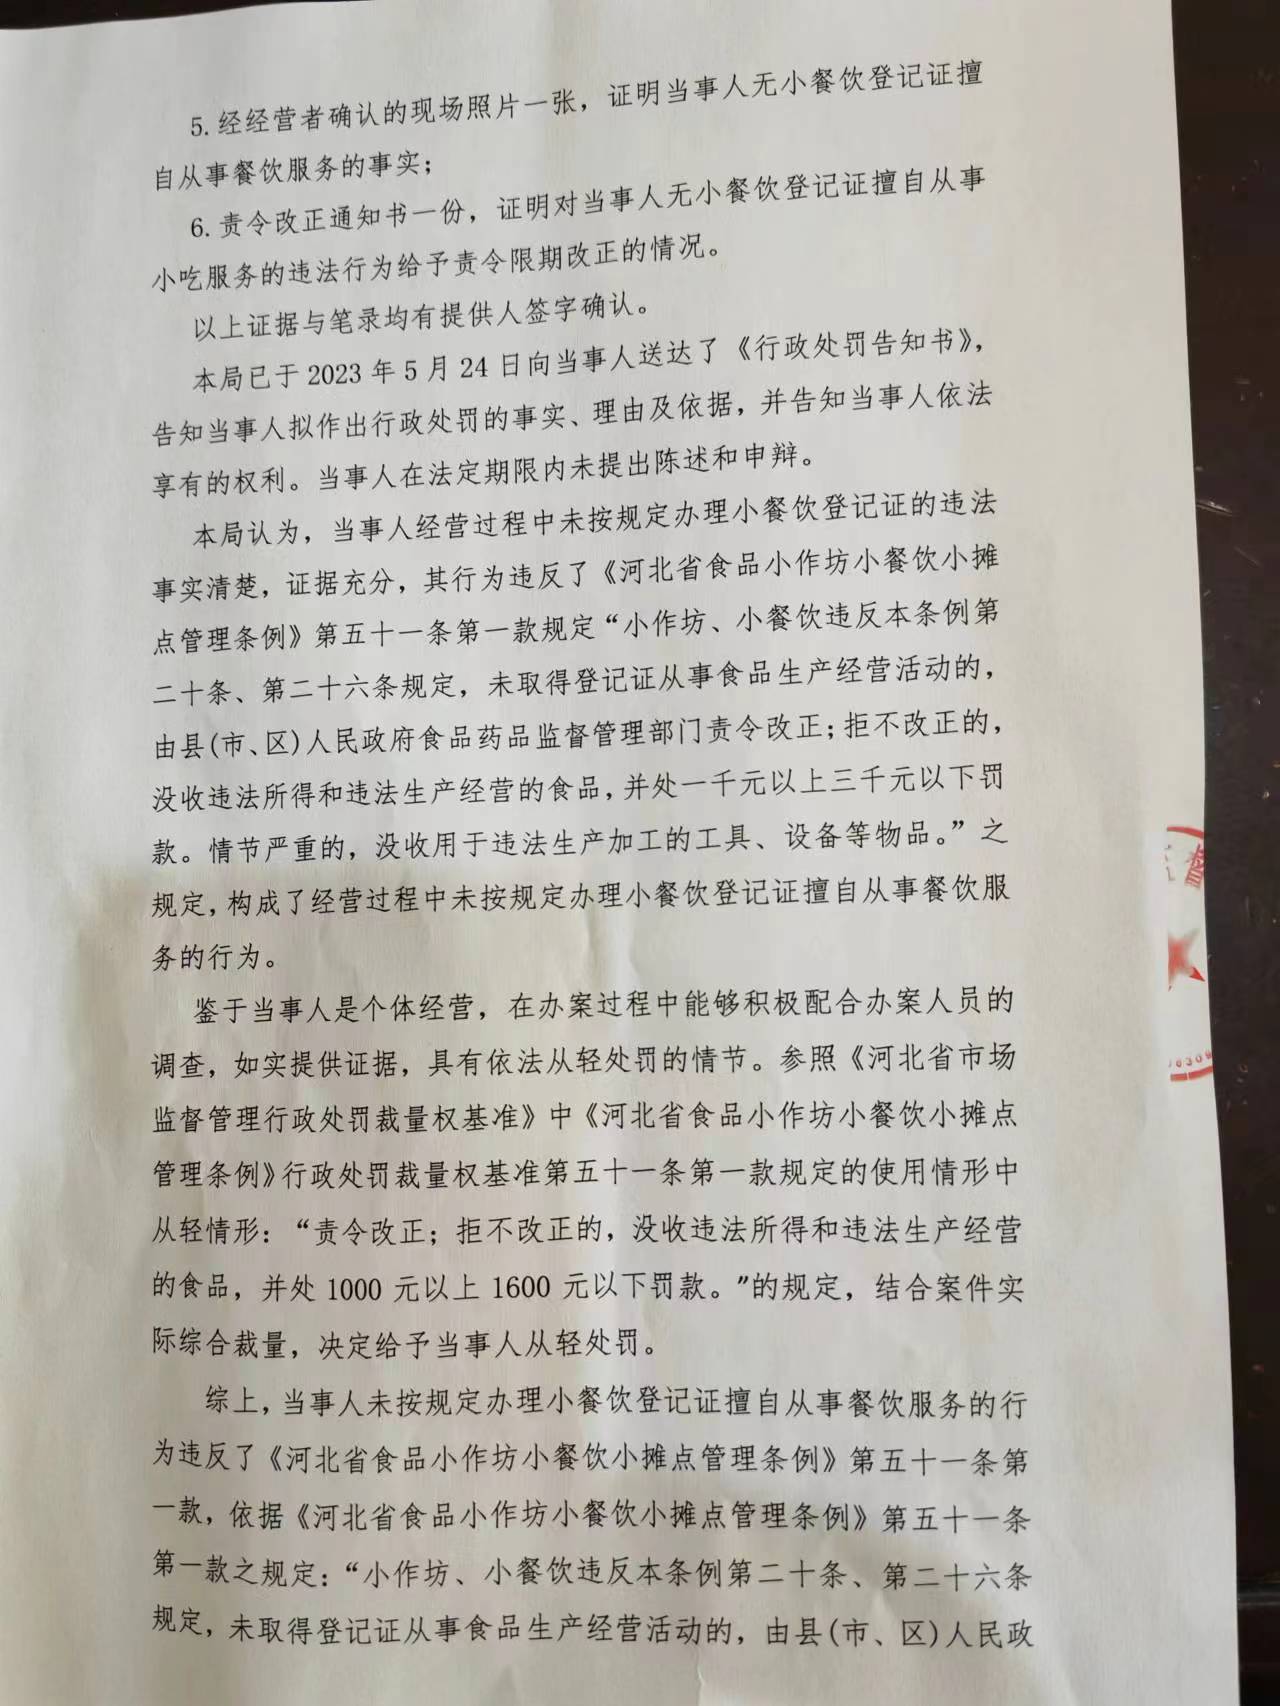 5. 经经营者确认的现场照片一张，证明当事人无小餐饮登记证擅
自从事餐饮服务的事实；
6. 责令改正通知书一份，证明对当事人无小餐饮登记证擅自从事
小吃服务的违法行为给予责令限期改正的情况。
以上证据与笔录均有提供人签字确认。
本局已于 2023 年 5 月 24 日向当事人送达了《行政处罚告知书》，
告知当事人拟作出行政处罚的事实、理由及依据，并告知当事人依法
享有的权利。当事人在法定期限内未提出陈述和申辩。
本局认为，当事人经营过程中未按规定办理小餐饮登记证的违法
事实清楚，证据充分，其行为违反了《河北省食品小作坊小餐饮小摊
点管理条例》第五十一条第一款规定“小作坊、小餐饮违反本条例第
二十条、第二十六条规定，未取得登记证从事食品生产经营活动的，
由县(市、区)人民政府食品药品监督管理部门责令改正；拒不改正的，
没收违法所得和违法生产经营的食品，并处一千元以上三千元以下罚
款。情节严重的，没收用于违法生产加工的工具、设备等物品。”之
规定，构成了经营过程中未按规定办理小餐饮登记证擅自从事餐饮服
务的行为。
鉴于当事人是个体经营，在办案过程中能够积极配合办案人员的
调查，如实提供证据，具有依法从轻处罚的情节。参照《河北省市场
监督管理行政处罚裁量权基准》中《河北省食品小作坊小餐饮小摊点
管理条例》行政处罚裁量权基准第五十一条第一款规定的使用情形中
从轻情形：“责令改正；拒不改正的，没收违法所得和违法生产经营
的食品，并处 1000 元以上 1600 元以下罚款。”的规定，结合案件实
际综合裁量，决定给予当事人从轻处罚。
综上，当事人未按规定办理小餐饮登记证擅自从事餐饮服务的行
为违反了《河北省食品小作坊小餐饮小摊点管理条例》第五十一条第
一款，依据《河北省食品小作坊小餐饮小摊点管理条例》第五十一条
第一款之规定：“小作坊、小餐饮违反本条例第二十条、第二十六条
规定，未取得登记证从事食品生产经营活动的，由县(市、区)人民政
督